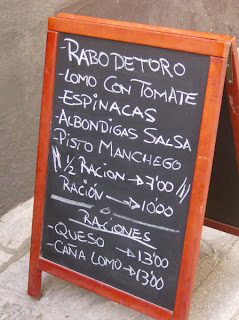 -RABO DE TORO
-LOMO CON TOMATE
-ESPINACAS
-ALBONDIGAS SALSA
-PISTO MANCHEGO
1/2 RACION → 7'00
RACIÓN → 10'00
RACIONES
-QUESO → 13'00
-CAÑA LOMO → 13'00